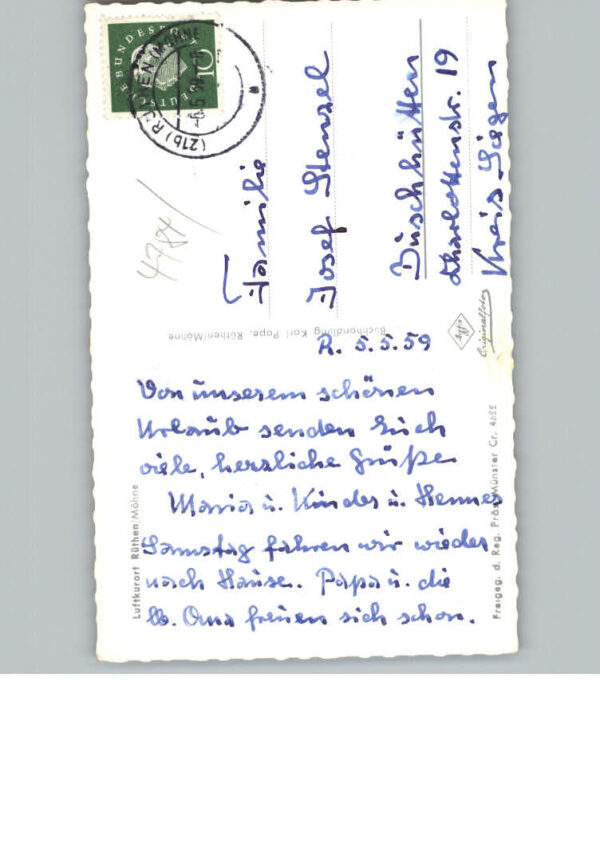 DEUTSCHE BUNDESPOST
10
(21b) RÜTHEN (MÖHNE)
-6.5.59
4784/
Familie
Josef Stenzel
Büschhütten
Charlottenstr. 19
Kreis Siegen
Buchhandlung Karl Pape, Rüthen/Möhne
Agfa
Originalfoto
R. 5.5.59
Von unserem schönen
Urlaub senden Euch
viele, herzliche Grüße
Maria u. Kinder u. Hennes
Samstag fahren wir wieder
nach Hause. Papa u. die
lb. Oma freuen sich schon.
Luftkurort Rüthen/Möhne
Freigeg. d. Reg. Präs. Münster Cr. 4692